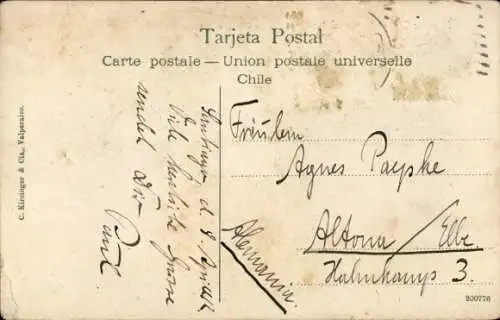 Tarjeta Postal
Carte postale — Union postale universelle
Chile
C. Kirsinger & Cia., Valparaiso.
Santiago d. 8. April
Viele herzliche Grüsse
sendet Dir
Paul
Fräulein
Agnes Paepke
Altona / Elbe
Hahnkamp 3.
Alemania.
200776